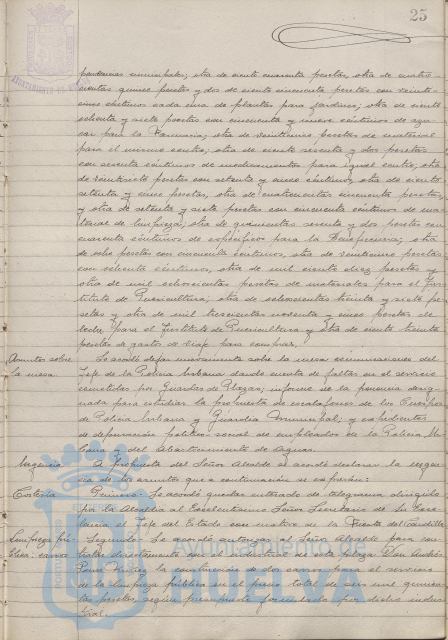 25
pendencias municipales; otra de ciento cuarenta pesetas, otra de cuatro
cientas quince pesetas y dos de ciento cincuenta pesetas con veinti-
cinco céntimos cada una de plantas para jardines; otra de ciento
ochenta y siete pesetas con cincuenta y nueve céntimos de azu
car para la Farmacia; otra de veinticinco pesetas de material
para el mismo centro; otra de ciento sesenta y dos pesetas
con sesenta céntimos de medicamentos para igual centro; otra
de veintisiete pesetas con setenta y cinco céntimos, otra de ciento
setenta y cinco pesetas, otra de cuatrocientas cincuenta pesetas,
y otra de setenta y siete pesetas con cincuenta céntimos de ma
terial de limpieza; otra de quinientas sesenta y dos pesetas con
cuarenta céntimos de específicos para la Beneficencia; otra
de ocho pesetas con cincuenta céntimos, otra de veinticinco pesetas
con ochenta céntimos, otra de mil ciento diez pesetas y
otra de mil ochocientas pesetas de materiales para el Ins
tituto de Puericultura; otra de ochocientas treinta y siete pe
setas y otra de mil trescientas noventa y cinco pesetas de
leche para el Instituto de Puericultura y otra de ciento treinta
pesetas de gastos de viaje para compras,
Asuntos sobre la mesa
Se acordó dejar nuevamente sobre la mesa comunicaciones del
Jefe de la Policía Urbana dando cuenta de faltas en el servicio
cometidas por Guardas de Plazas; informe de la ponencia desig
nada para estudiar la propuesta de escalafones de los Cuerpos
de Policía Urbana y Guardia Municipal; y expedientes
de depuración político-social de empleados de la Policía Ur
bana y del Abastecimiento de Aguas.
Urgencia
A propuesta del Señor Alcalde se acordó declarar la urgen
cia de los asuntos que a continuación se expresan:
Cortesía
Primero: Se acordó quedar enterado de telegrama dirigido
por la Alcaldía al Excelentísimo Señor Secretario de Su Exce
lencia el Jefe del Estado con motivo de la Fiesta del Caudillo
Limpieza pú-
blica: carros
Segundo: Se acordó autorizar al Señor Alcalde para con
tratar directamente con el industrial de esta plaza Don Andrés
la construcción de dos carros para el servicio
de la limpieza pública en el precio total de seis mil quinien
tas pesetas, según presupuesto formulado por dicho indus
trial.
AYUNTAMIENTO DE HUELVA